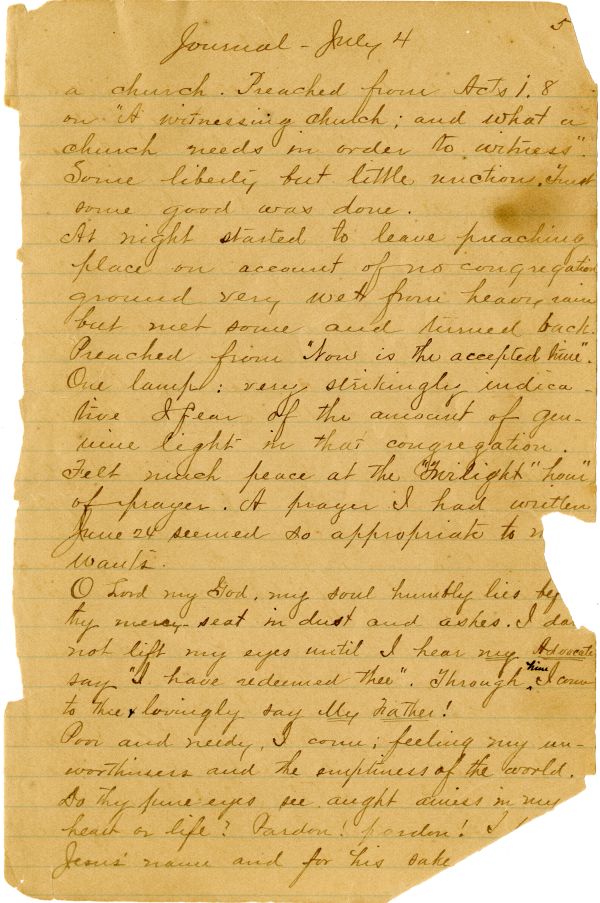 5
Journal - July 4
a church. Preached from Acts 1, 8
on "A witnessing church; and what a
church needs in order to witness".
Some liberty but little unction. Trust
some good was done.
At night started to leave preaching
place on account of no congregation
ground very wet from heavy rain
but met some and turned back.
Preached from "Now is the accepted time".
One lamp: very strikingly indica-
tive I fear of the amount of gen-
uine light in that congregation.
Felt much peace at the "Twilight" hour"
of prayer. A prayer I had written
June 24 seemed so appropriate to
wants.
O Lord my God, my soul humbly lies by
thy mercy-seat in dust and ashes. I
not lift my eyes until I hear my Advocate
say "I have redeemed thee". Through him I come
to thee & lovingly say My Father!
Poor and needy, I come; feeling my un-
worthiness and the emptiness of the world.
Do thy pure eyes see aught amiss in my
heart or life? Pardon! pardon! I
Jesus' name and for his sake